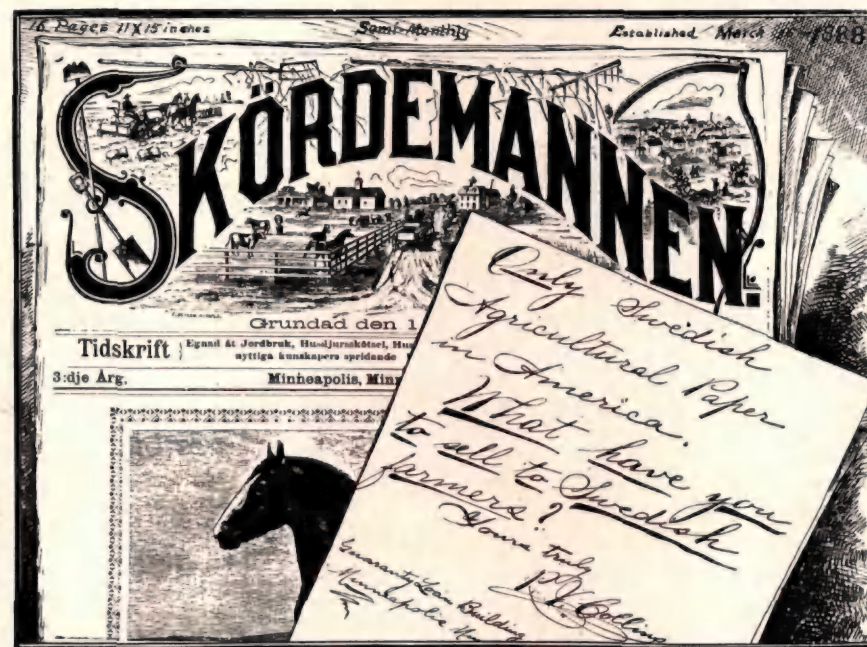 16 Pages 11X15 inches Semi-Monthly Established March 1888
SKÖRDEMANNEN.
Grundad den 1
Tidskrift Egnad åt Jordbruk, Husdjursskötsel, Hus
nyttiga kunskapers spridande
3:dje Årg. Minneapolis, Minn
Only Swedish
Agricultural Paper
in America.
What have you
to sell to Swedish
farmers?
Yours truly
P. V. Collins
Guaranty Loan Building
Minneapolis